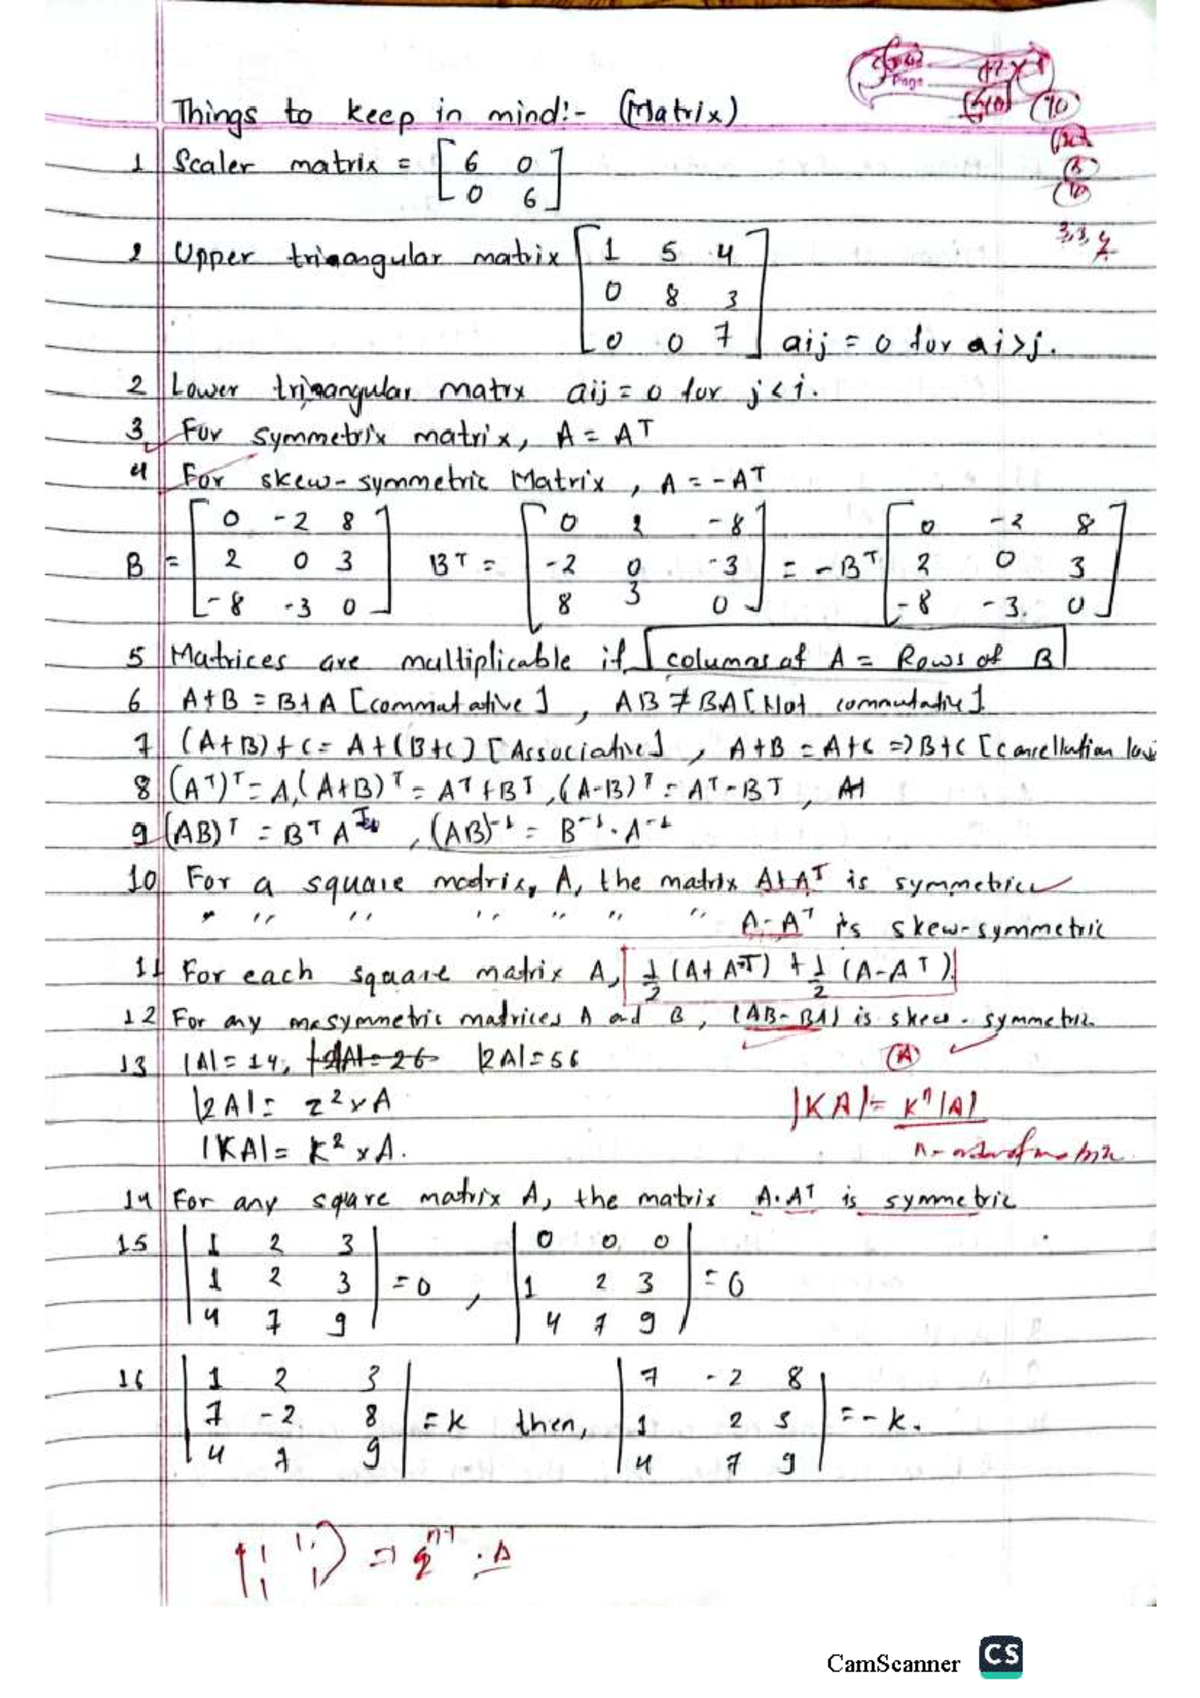 Things to keep in mind:- (Matrix)
1 Scaler matrix = [6 0
0 6]
2 Upper triangular matrix [1 5 4
0 8 3
0 0 7] aij = 0 for i>j.
2 Lower triangular matrx aij = 0 for j<i.
3 For symmetrix matrix, A = A^T
4 For skew-symmetric Matrix, A = -A^T
B = [0 -2 8
2 0 3
-8 -3 0] B^T = [0 2 -8
-2 0 -3
8 3 0] = -B^T [0 -2 8
2 0 3
-8 -3 0]
5 Matrices are multiplicable if columns of A = Rows of B
6 A+B = B+A [commutative], AB ≠ BA [Not commutative].
7 (A+B)+C = A+(B+C) [Associative], A+B = A+C => B+C [cancellation law
8 (A^T)^T = A, (A+B)^T = A^T + B^T, (A-B)^T = A^T - B^T,
9 (AB)^T = B^T A^T, (AB)^-1 = B^-1 . A^-1
10 For a square matrix, A, the matrix A+A^T is symmetric
" " " " " " " A-A^T is skew-symmetric
11 For each square matrix A, 1/2 (A+A^T) + 1/2 (A-A^T).
12 For any symmetric matrices A and B, (AB-BA) is skew-symmetric
13 |A| = 14, |2A| = 56 (A)
|2A| = 2^2 x A |KA| = K^n |A|
|KA| = K^2 x A. n- order of matrix
14 For any sqare matrix A, the matrix A.A^T is symmetric
15 |1 2 3
1 2 3
4 7 9| = 0, |0 0 0
1 2 3
4 7 9| = 0
16 |1 2 3
7 -2 8
4 7 9| = k then, |7 -2 8
1 2 3
4 7 9| = -k.
CamScanner CS